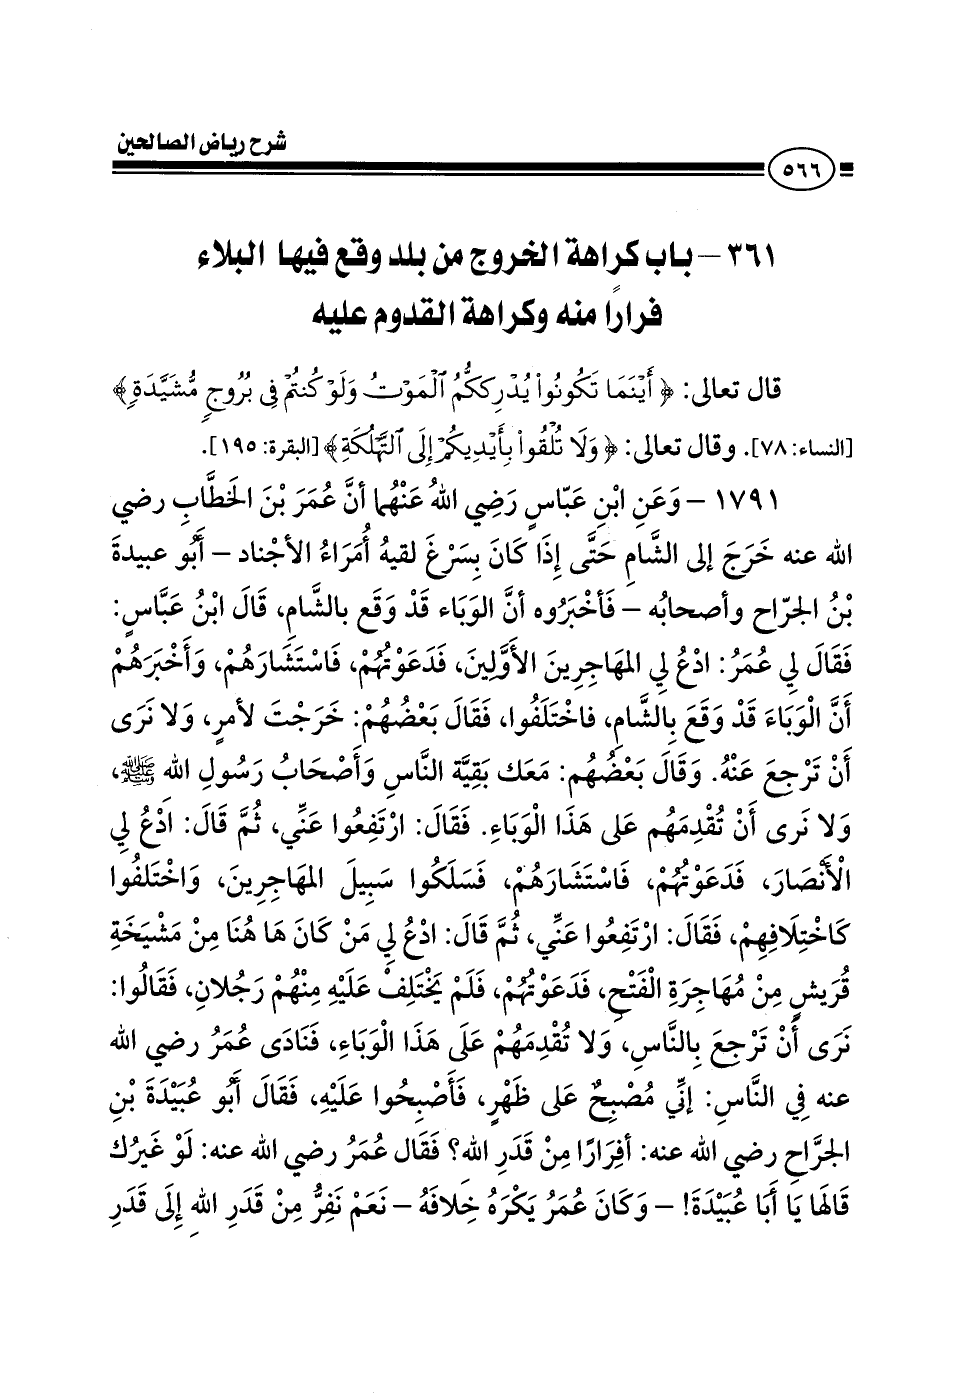 شرح رياض الصالحين
٥٦٦
٣٦١ – باب كراهة الخروج من بلد وقع فيها البلاء
فرارًا منه وكراهة القدوم عليه
قال تعالى: ﴿ أَيْنَمَا تَكُونُوا۟ يُدْرِككُّمُ ٱلْمَوْتُ وَلَوْ كُنتُمْ فِى بُرُوجٍ مُّشَيَّدَةٍ ﴾
[النساء: ٧٨]. وقال تعالى: ﴿ وَلَا تُلْقُوا۟ بِأَيْدِيكُمْ إِلَى ٱلتَّهْلُكَةِ ﴾ [البقرة: ١٩٥].
١٧٩١ – وَعَنِ ابْنِ عَبّاسٍ رَضِي اللهُ عَنْهُما أنَّ عُمَرَ بْنَ الخَطَّابِ رضي
الله عنه خَرَجَ إلى الشَّامِ حَتَّى إِذَا كَانَ بِسَرْغَ لقيهُ أُمَرَاءُ الأجْناد – أَبُو عبيدةَ
بْنُ الجَرّاح وأصحابُه – فَأخْبَرُوه أنَّ الوَبَاء قَدْ وَقَع بالشَّام، قَالَ ابْنُ عَبَّاس:
فَقَالَ لِي عُمَرُ: ادْعُ لِي المهَاجِرِينَ الأَوَّلِينَ، فَدَعَوْتُهُمْ، فَاسْتَشَارَهُمْ، وَأَخْبَرَهُمْ
أَنَّ الْوَبَاءَ قَدْ وَقَعَ بِالشَّامِ، فاخْتَلَفُوا، فَقَالَ بَعْضُهُمْ: خَرَجْتَ لأمرٍ، وَلا نَرَى
أَنْ تَرْجِعَ عَنْهُ. وَقَالَ بَعْضُهُم: مَعَك بَقِيَّة النَّاسِ وَأَصْحَابُ رَسُولِ الله ﷺ،
وَلا نَرى أَنْ تُقْدِمَهُم عَلى هَذَا الْوَبَاءِ. فَقَالَ: ارْتَفِعُوا عَنِّي، ثُمَّ قَالَ: ادْعُ لِي
الْأَنْصَارَ، فَدَعَوْتُهُمْ، فَاسْتَشَارَهُمْ، فَسَلَكُوا سَبِيلَ المهَاجِرِينَ، وَاخْتَلَفُوا
كَاخْتِلافِهِمْ، فَقَالَ: ارْتَفِعُوا عَنِّي، ثُمَّ قَالَ: ادْعُ لِي مَنْ كَانَ هَا هُنَا مِنْ مَشْيَخَةِ
قُرَيشٍ مِنْ مُهَاجِرَةِ الْفَتْحِ، فَدَعَوْتُهُمْ، فَلَمْ يَخْتَلِفْ عَلَيْهِ مِنْهُمْ رَجُلانِ، فَقَالُوا:
نَرَى أَنْ تَرْجِعَ بِالنَّاسِ، وَلا تُقْدِمَهُمْ عَلَى هَذَا الْوَبَاءِ، فَنَادَى عُمَرُ رضي الله
عنه فِي النَّاسِ: إنِّي مُصْبِحٌ عَلى ظَهْرٍ، فَأَصْبِحُوا عَلَيْهِ، فَقَالَ أَبُو عُبَيْدَةَ بْنِ
الجَرَّاحِ رضي الله عنه: أفِرَارًا مِنْ قَدَرِ الله؟ فَقَال عُمَرُ رضي الله عنه: لَوْ غَيْرُكَ
قَالهَا يَا أَبَا عُبَيْدَةَ! – وَكَانَ عُمَرُ يَكْرَهُ خِلافَهُ – نَعَمْ نَفِرُّ مِنْ قَدَرِ اللهِ إِلَى قَدَرِ